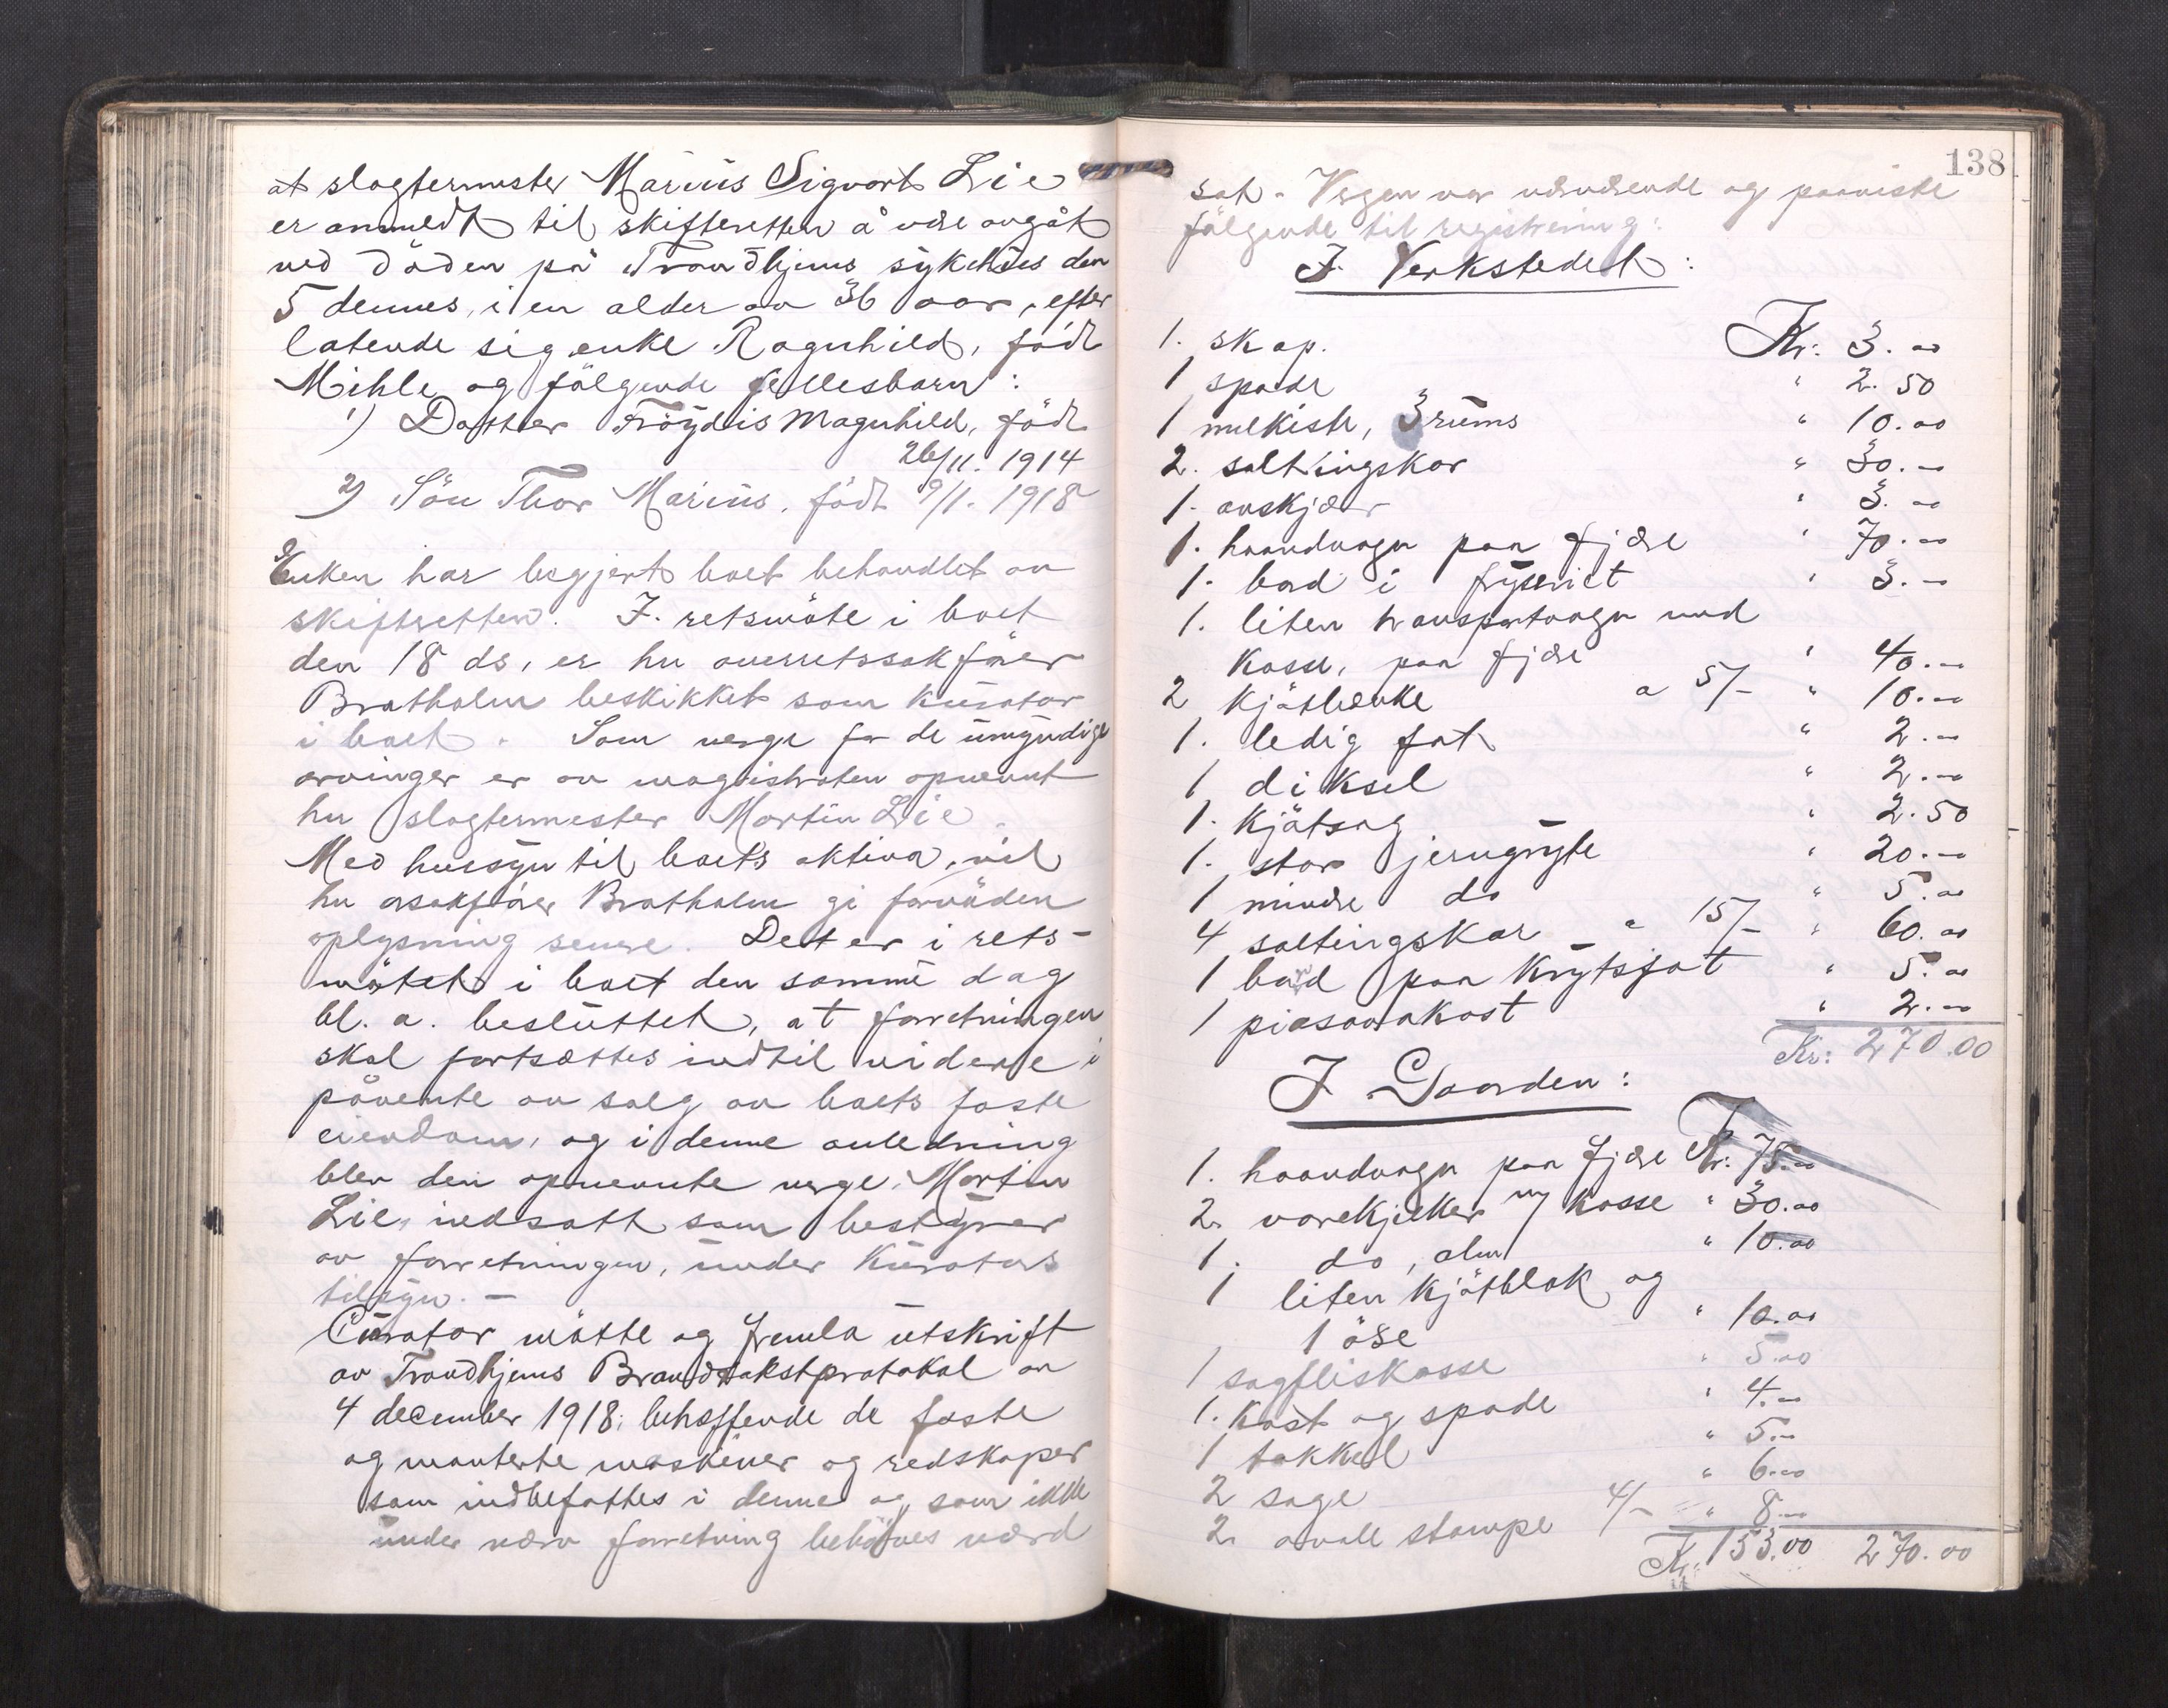 at slagtermester Marius Sigvart Lie
er anmeldt til skifteretten å være avgåt
ved döden på Trondhjems sykehus den
5 dennes, i en alder av 36 aar, efter
latende sig enke Ragnhild, född
Mihle og fölgende fellesbarn:
1) Datter Fröydis Magnhild, född
26/11. 1914
2) Sön Thor Marius, född 9/1. 1918
Enken har begjert boet behandlet av
skifteretten. I. retsmöte i boet
den 18 ds, er hr overretssakförer
Bratholm beskikket som kurator
i boet. Som verge for de umyndige
arvinger er av magistraten opnevnt
hr slagtermester Martin Lie.
Med hensyn til boets aktiva, vil
hr osakförer Bratholm gi fornöden
oplysning senere. Det er i rets-
mötet i boet den samme dag
bl. a. besluttet, at forretningen
skal fortsættes indtil videre i
påvente av salg av boets faste
eiendom, og i denne anledning
blev den opnevnte verge, Martin
Lie, indsatt som bestyrer
av forretningen, under kurators
tilsyn. -
Curator mötte og fremla utskrift
av Trondhjems Brandtakstprotokol av
4 december 1918, behæffende de faste
og monterte maskiner og redskaper
som indbefattes i denne og som ikke
under nærv forretning behöves værd
138
sat. Vergen var nærværende og paaviste
fölgende til registrering:
I Verkstedet:
1. skap. Kr: 3.00
1 spade " 2.50
1 melkiste, 3 rums " 10.00
2. saltningskar " 30.-
1. auskjær " 3.00
1. haandvogn paa fjære " 70.00
1. bord i fryseriet " 3.-
1. liten transportvogn med
kasse, paa fjære " 40.00
2 kjötbænke a 5/- " 10.00
1. ledig fat " 2.00
1 diksel " 2.00
1. kjötsag " 2.50
1. stor jerngryte " 20.00
1 mindre do " 5.00
4 saltingskar a 15/- " 60.00
1 bord paa krytsfot " 5.00
1 piasavakost " 2.00
Kr: 270.00
I Gaarden:
1. haandvogn paa fjære Kr. 75.00
2. varekjelker m/ kasse " 30.00
1. do, alm " 10.00
1 liten kjötblok og
1 öse " 10.00
1 sagfliskasse " 5.00
1. kost og spade " 4.00
1 takkel " 5.00
2 sage " 6.00
2. ovale stampe 4/- " 8.00
Kr. 153.00 270.00